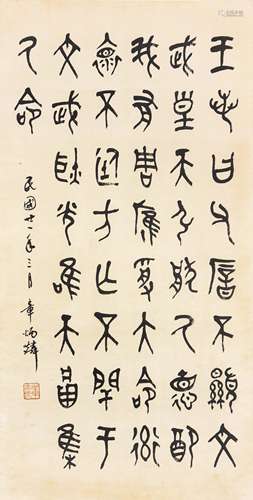 王若曰父厝不顯文
武皇天弘猒氒德配
我有周雁受大命率
褱不廷方亡不閈于
文武耿光唯天將集
氒命
民國廿一年三月 章炳麟